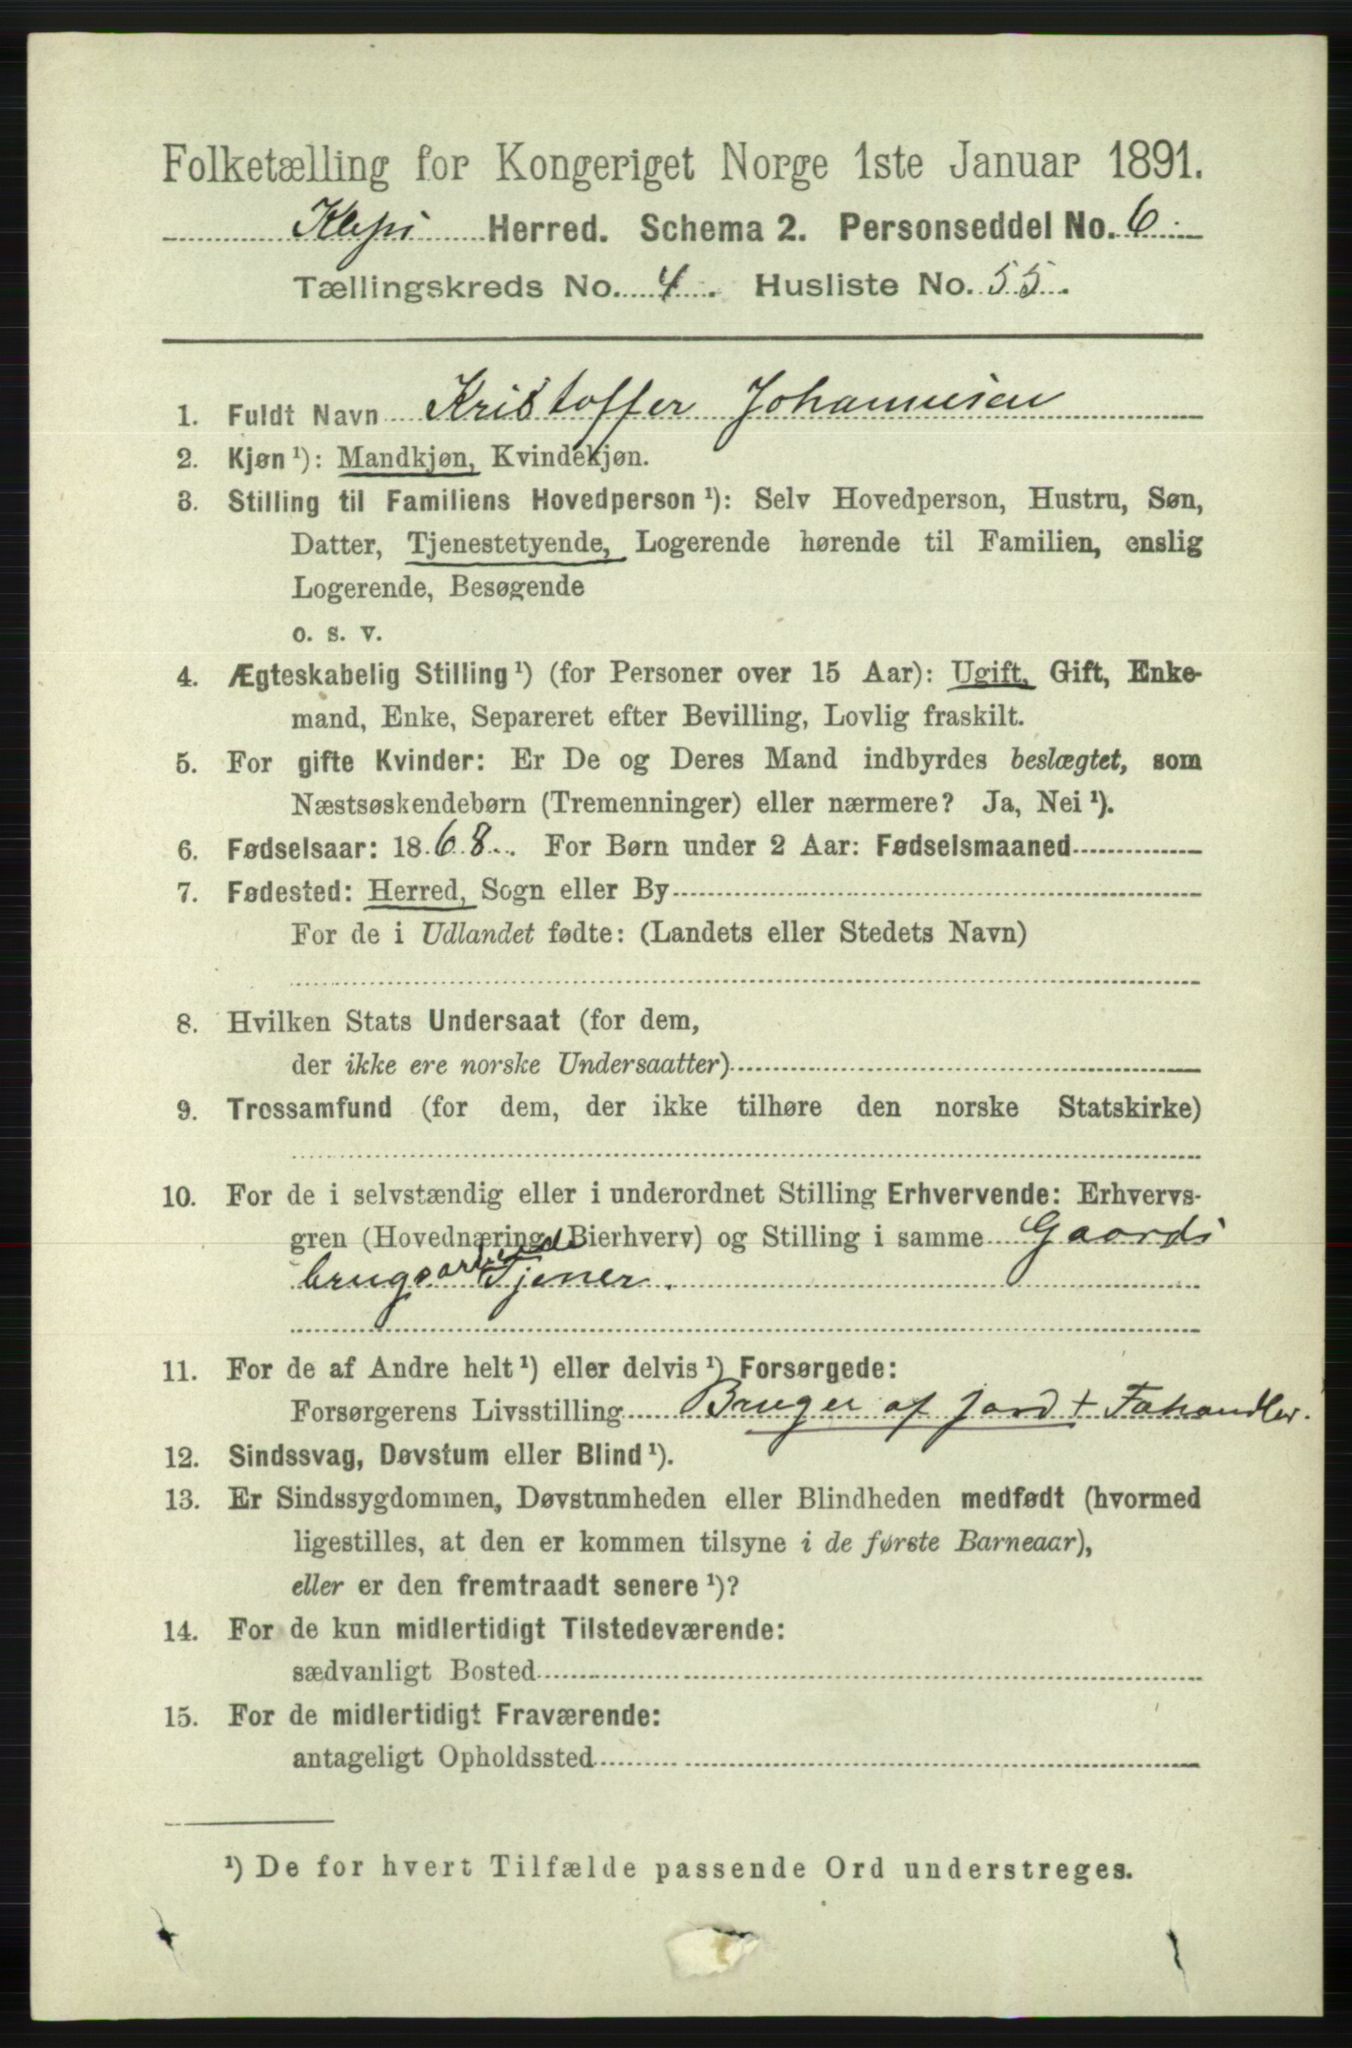 Folketælling for Kongeriget Norge 1ste Januar 1891.
Klepp Herred. Schema 2. Personseddel No. 6.
Tællingskreds No. 4. Husliste No. 55.
1. Fuldt Navn Kristoffer Johannesen
2. Kjøn ¹): Mandkjøn, Kvindekjøn.
3. Stilling til Familiens Hovedperson ¹): Selv Hovedperson, Hustru, Søn,
Datter, Tjenestetyende, Logerende hørende til Familien, enslig
Logerende, Besøgende
o. s. v.
4. Ægteskabelig Stilling ¹) (for Personer over 15 Aar): Ugift, Gift, Enke-
mand, Enke, Separeret efter Bevilling, Lovlig fraskilt.
5. For gifte Kvinder: Er De og Deres Mand indbyrdes beslægtet, som
Næstsøskendebørn (Tremenninger) eller nærmere? Ja, Nei ¹).
6. Fødselsaar: 1868. For Børn under 2 Aar: Fødselsmaaned
7. Fødested: Herred, Sogn eller By
For de i Udlandet fødte: (Landets eller Stedets Navn)
8. Hvilken Stats Undersaat (for dem,
der ikke ere norske Undersaatter)
9. Trossamfund (for dem, der ikke tilhøre den norske Statskirke)
10. For de i selvstændig eller i underordnet Stilling Erhvervende: Erhvervs-
gren (Hovednæring, Bierhverv) og Stilling i samme Gaards
brugsarbeide Tjener.
11. For de af Andre helt ¹) eller delvis ¹) Forsørgede:
Forsørgerens Livsstilling Bruger af jord + Fæhandler.
12. Sindssvag, Døvstum eller Blind ¹).
13. Er Sindssygdommen, Døvstumheden eller Blindheden medfødt (hvormed
ligestilles, at den er kommen tilsyne i de første Barneaar),
eller er den fremtraadt senere ¹)?
14. For de kun midlertidigt Tilstedeværende:
sædvanligt Bosted
15. For de midlertidigt Fraværende:
antageligt Opholdssted
¹) De for hvert Tilfælde passende Ord understreges.